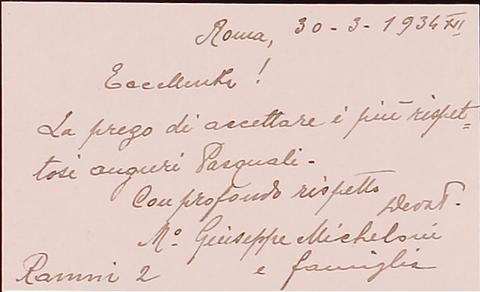 Roma, 30-3-1934 XII
Eccellenza!
La prego di accettare i più rispet=
tosi auguri Pasquali-
Con profondo rispetto
Devot.
Mo. Giuseppe Micheloni
e famiglia
2